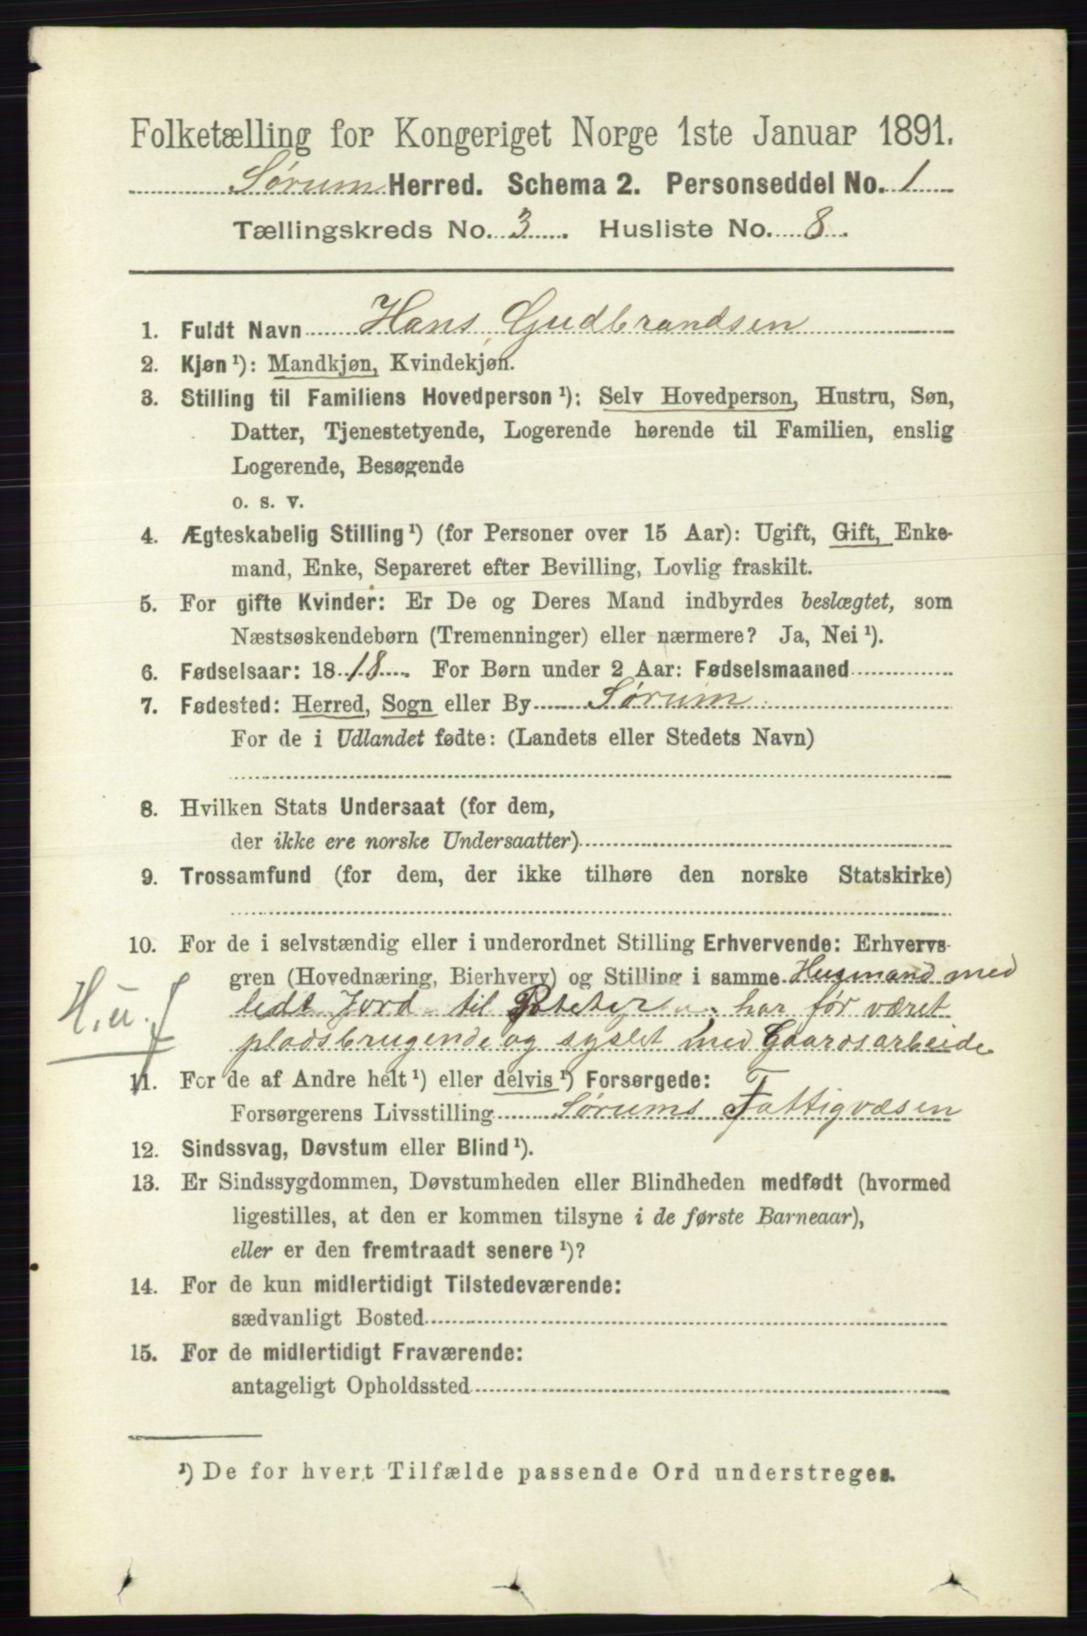 Folketælling for Kongeriget Norge 1ste Januar 1891.
Sørum Herred. Schema 2. Personseddel No. 1
Tællingskreds No. 3. Husliste No. 8.
1. Fuldt Navn Hans Gudbrandsen
2. Kjøn ¹): Mandkjøn, Kvindekjøn.
3. Stilling til Familiens Hovedperson ¹): Selv Hovedperson, Hustru, Søn,
Datter, Tjenestetyende, Logerende hørende til Familien, enslig
Logerende, Besøgende
o. s. v.
4. Ægteskabelig Stilling ¹) (for Personer over 15 Aar): Ugift, Gift, Enke-
mand, Enke, Separeret efter Bevilling, Lovlig fraskilt.
5. For gifte Kvinder: Er De og Deres Mand indbyrdes beslægtet, som
Næstsøskendebørn (Tremenninger) eller nærmere? Ja, Nei ¹).
6. Fødselsaar: 1818. For Børn under 2 Aar: Fødselsmaaned
7. Fødested: Herred, Sogn eller By Sørum
For de i Udlandet fødte: (Landets eller Stedets Navn)
8. Hvilken Stats Undersaat (for dem,
der ikke ere norske Undersaatter)
9. Trossamfund (for dem, der ikke tilhøre den norske Statskirke)
10. For de i selvstændig eller i underordnet Stilling Erhvervende: Erhvervs-
gren (Hovednæring, Bierhverv) og Stilling i samme Husmand med
H. u. f lidt Jord til Poteter, har før været
pladsbrugende og syslet med Gaardsarbeide
11. For de af Andre helt ¹) eller delvis ¹) Forsørgede:
Forsørgerens Livsstilling Sørums Fattigvæsen
12. Sindssvag, Døvstum eller Blind ¹).
13. Er Sindssygdommen, Døvstumheden eller Blindheden medfødt (hvormed
ligestilles, at den er kommen tilsyne i de første Barneaar),
eller er den fremtraadt senere ¹)?
14. For de kun midlertidigt Tilstedeværende:
sædvanligt Bosted
15. For de midlertidigt Fraværende:
antageligt Opholdssted
¹) De for hvert Tilfælde passende Ord understreges.